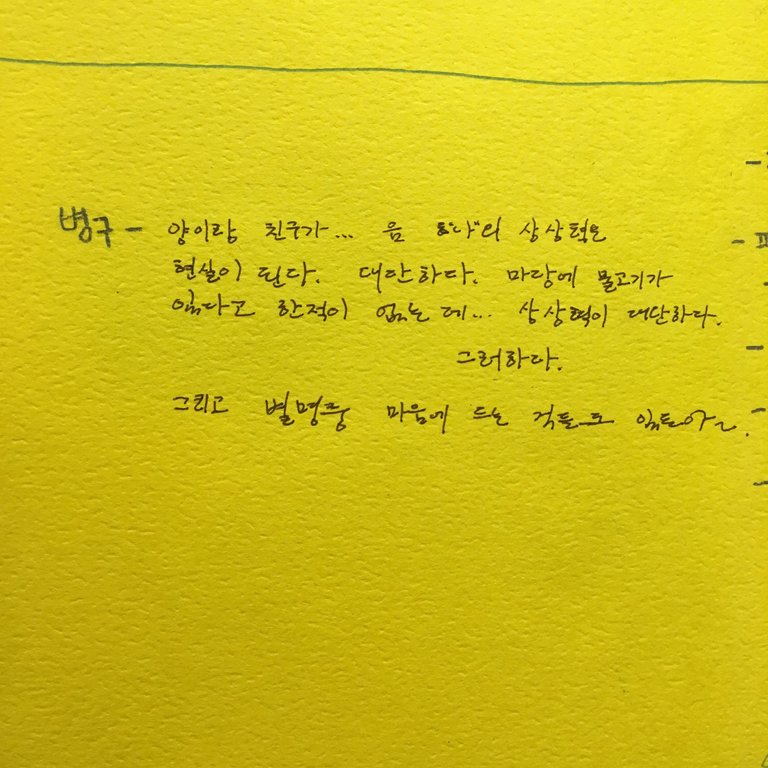 병구 - 양이랑 친구가... 음 "나"의 상상력은
현실이 된다. 대단하다. 마당에 물고기가
있다고 한적이 없는데... 상상력이 대단하다.
그러하다.
그리고 별명중 마음에 드는 것들도 있드아~.